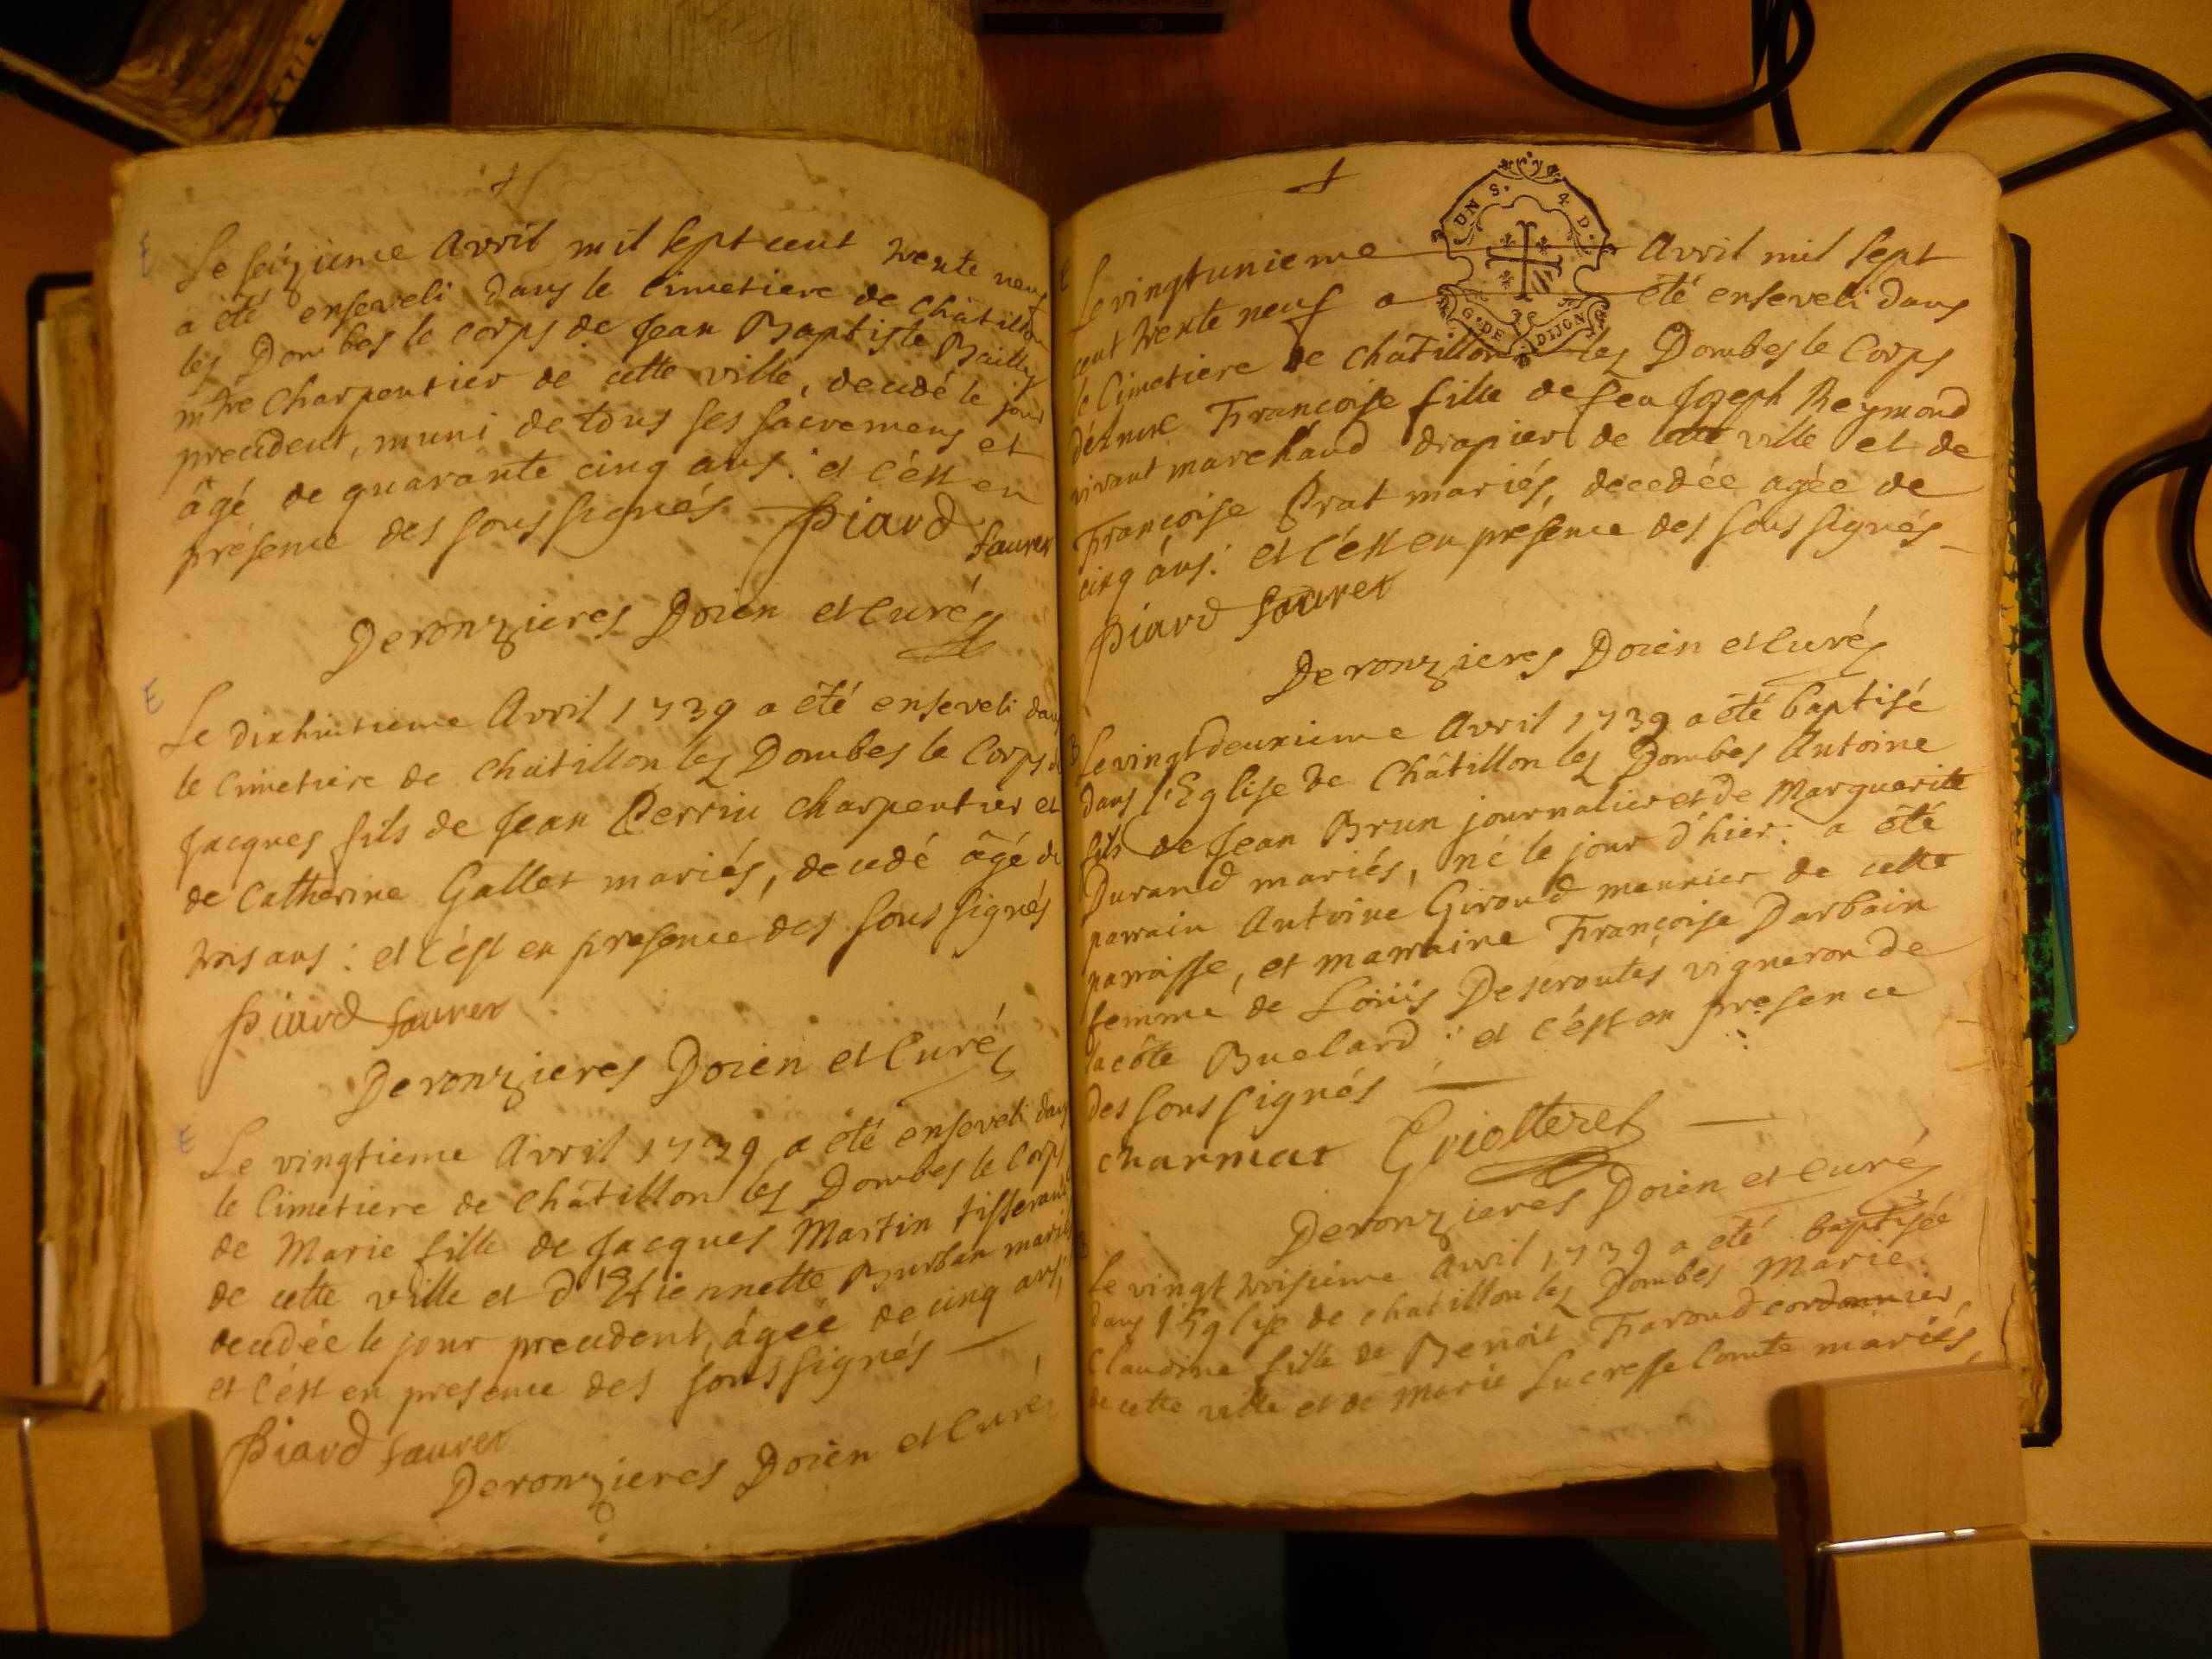 E
Le seizieme Avril mil sept cent trente neuf
a été enseveli dans le Cimetiere de Châtillon
les Dombes le corps de Jean Baptiste Bailly
mtre Charpentier de cette ville, decedé le jour
precedent, muni de tous ses sacremens et
âgé de quarante cinq ans : et c'est en
présence des soussignés Piard
faurer
Deronzieres Doien et Curé
E
Le dixhuitieme Avril 1739 a été enseveli dans
le Cimetiere de Châtillon les Dombes le Corps de
Jacques fils de Jean Perrin charpentier et
de Catherine Gallet mariés, decedé âgé de
trois ans : et c'est en presence des soussignés
Piard faurer
Deronzieres Doien et Curé
E
Le vingtieme Avril 1739 a été enseveli dans
le Cimetiere de Châtillon les Dombes le Corps
de Marie fille de Jacques Martin tisserand
de cette ville et d'Etiennette Burban mariés
decedée le jour precedent, âgée de cinq ans,
et c'est en presence des soussignés
Piard faurer
Deronzieres Doien et Curé
UN S. 4 D.
G. DE DIJON
E
Le vingtunieme Avril mil sept
cent trente neuf a été enseveli dans
le Cimetiere de Châtillon les Dombes le Corps
Françoise fille de feu Joseph Reymond
vivant marchand drapier de cette ville et de
Françoise Prat mariés, decedée agée de
cinq ans : et c'est en présence des soussignés
Piard faurer
Deronzieres Doien et Curé
B
Le vingtdeuxieme Avril 1739 a été baptisé
dans l'Eglise de Châtillon les Dombes Antoine
fils de Jean Brun journalier et de Marguerite
Durand mariés, né le jour d'hier : a été
parrain Antoine Giroud meunier de cette
parroisse, et marraine Françoise Darbain
femme de Loüis Descroutes vigneron de
la côte Buelard : et c'est en presence
des soussignés
charmat
Deronzieres Doien et Curé
B
Le vingt troisieme Avril 1739 a été baptisée
dans l'Eglise de chatillon les Dombes Marie
Claudine fille de Benoit Faroud cordonnier
de cette ville et de Marie Lucresse Comte mariés,